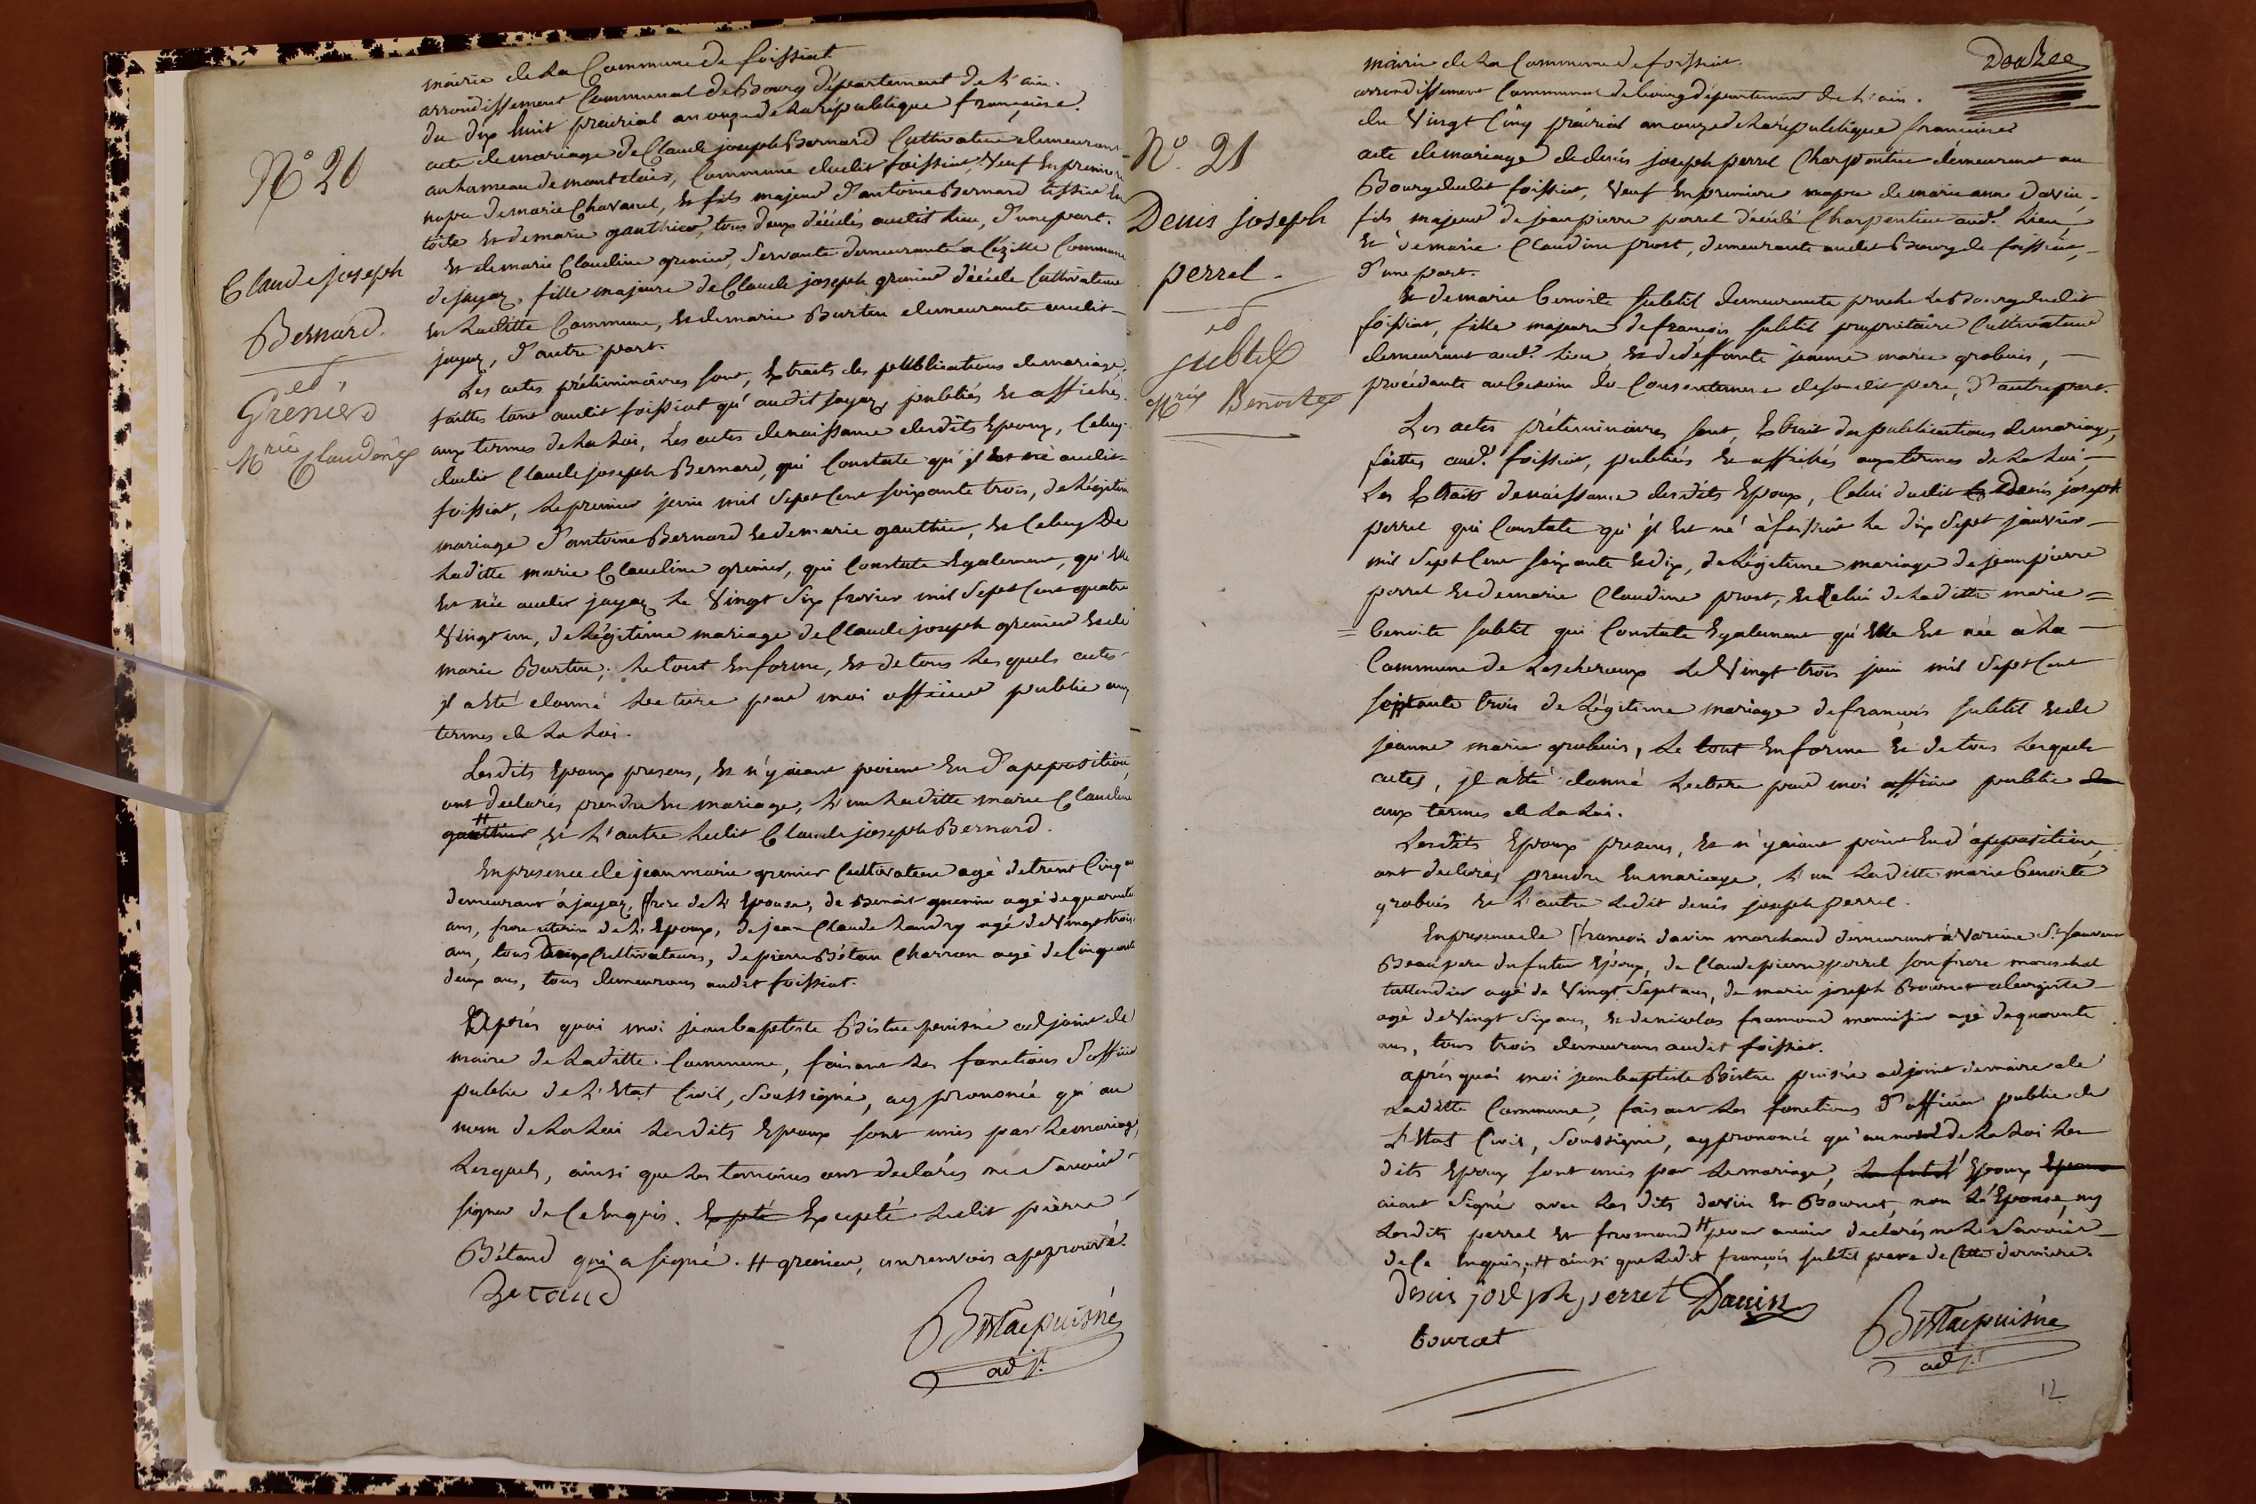 mairie de la Commune de foissiat
arrondissement Communal de Bourg département de l'ain.
du dix huit prairial an onze de la république française.
acte de mariage de Claude joseph Bernard Cultivateur demeurant
au hameau de montelais, Commune dudit foissiat, Veuf En premiere
nopce de marie Chavanel, Et fils majeur d'antoine Bernard tissier En
toile Et de marie gauthier, tous deux décédés audit lieu, d'une part.
Et de marie Claudine grenier, Servante demeurante a Cézille Commune
de jayaz, fille majeure de Claude joseph grenier décédé Cultivateur
En laditte Commune, Et de marie Burtin demeurante audit
jayaz, d'autre part.
Les actes préliminaires sont, Extraits des publications de mariage,
faittes tant audit foissiat qu'audit jayaz, publiés Et affichés
aux termes de la Loi, Les actes de naissance desdits Epoux, Celuy
dudit Claude joseph Bernard, qui Constate qu'il Est né audit
foissiat, le premier juin mil Sept Cent soixante trois, de Légitime
mariage d'antoine Bernard Et de marie gauthier, Et Celuy De
laditte marie Claudine grenier, qui Constate Egalement, qu'elle
Est née audit jayaz le Vingt Six fevrier mil Sept Cent quatre
Vingt un, de Légitime mariage de Claude joseph grenier Et de
marie Burtin; le tout En forme, Et de tous lesquels actes
il a Eté donné Lecture par moi officier public aux
termes de la Loi.
Lesdits Epoux presens, Et n'y aiant point Eu d'apposition,
ont declarés prendre En mariage, l'un laditte marie Claudine
gauthier H, Et l'autre ledit Claude joseph Bernard.
En presence de jean marie grenier Cultivateur agé de trent Cinq ans
demeurant à jayaz, frere de l'Epouse, de Benoit guenin agé de quarante
ans, frere uterin de l'Epoux, de jean Claude Landry agé de Vingt trois
ans, tous Trois Cultivateurs, de pierre Bétau Charron agé de Cinquante
deux ans, tous demeurans audit foissiat.
Après quoi moi jean baptiste Bistac puisné adjoint de
maire de laditte Commune, faisant les fonctions d'officier
public de l'Etat Civil, Soussigné, ay prononcé qu'au
nom de la Loi lesdits Epoux sont unis par le mariage,
Lesquels, ainsi que les temoins ont declarés ne Savoir
signer de Ce Enquis. Expté Excepté ledit pierre
Bétaud qui a signé. H grenier, un renvois approuvé.
Betaud
Bistac puisné
adj.t
N.º 20
Claude joseph
Bernard.
et
Grenier
M.rie Claudine
mairie de la Commune de foissiat.
Douze
arrondissement Communal de bourg département de l'ain.
du Vingt Cinq prairial an onze de la république française
acte de mariage de denis joseph perrel Charpentier demeurant au
Bourg dudit foissiat, Veuf En premiere nopce de marie anne davin,
fils majeur de jean pierre perrel décédé Charpentier aud.t Lieu
Et de marie Claudine prost, demeurante audit Bourg de foissiat,
d'une part.
Et de marie benoite subtil demeurante proche le Bourg dudit
foissiat, fille majeure de françois subtil propriétaire Cultivateur
demeurant aud.t lieu Et de déffunte jeanne marie grobuis,
procédante au besoin du Consentement de sondit pere, d'autre part.
Les actes préliminaires sont, Extrait des publications de mariage,
faittes aud.t foissiat, publiés Et affichés aux termes de la Loi
Les Extraits de naissance desdits Epoux, Celui dudit denis joseph
perrel qui Constate qu'il Est né à foissiat le dix Sept janvier
mil Sept Cent soixante Et dix, de Légitime mariage de jean pierre
perrel Et de marie Claudine prost, Et Celui de laditte marie
benoite subtil qui Constate Egalement qu'elle Est née à la
Commune de Lescheroux le Vingt trois juin mil Sept Cent
septante trois de Légitime mariage de françois subtil Et de
jeanne marie grobuis, Le tout En forme Et de tous lesquels
actes, il a Eté donné Lecture par moi officier public de
aux termes de la Loi.
Lesdits Epoux presens, Et n'y aiant point Eu d'apposition,
ont declarés prendre En mariage, l'un laditte marie benoite
grobuis Et l'autre ledit denis joseph perrel.
En presence de françois davin marchand demeurant à Varenne S.t Sauveur
Beaupere du futur Epoux, de Claude pierre perrel son frere mareschal
taillandier agé de Vingt Sept ans, de marie joseph Bournat
agé de Vingt Six ans, Et de nicolas fromond menuisier agé de quarante
ans, tous trois demeurans audit foissiat.
après quoi moi jean baptiste Bistac puisné adjoint de maire de
laditte Commune, faisant les fonctions d'officier public de
l'Etat Civil, Soussigné, ay prononcé qu'au nom de la Loi les
dits Epoux sont unis par le mariage, Le futur Epoux Epoux
aiant signé avec lesdits davin Et Bournat, non l'Epouse, ny
lesdits perrel Et fromond H pour avoir declarés ne le Savoir
de Ce Enquis. H ainsi que ledit françois subtil pere de Cette derniere.
denis joseph perret Davin
bourat
Bistac puisné
adj.t
12
N.º 21
Denis joseph
perrel.
et
subtil
M.rie Benoite